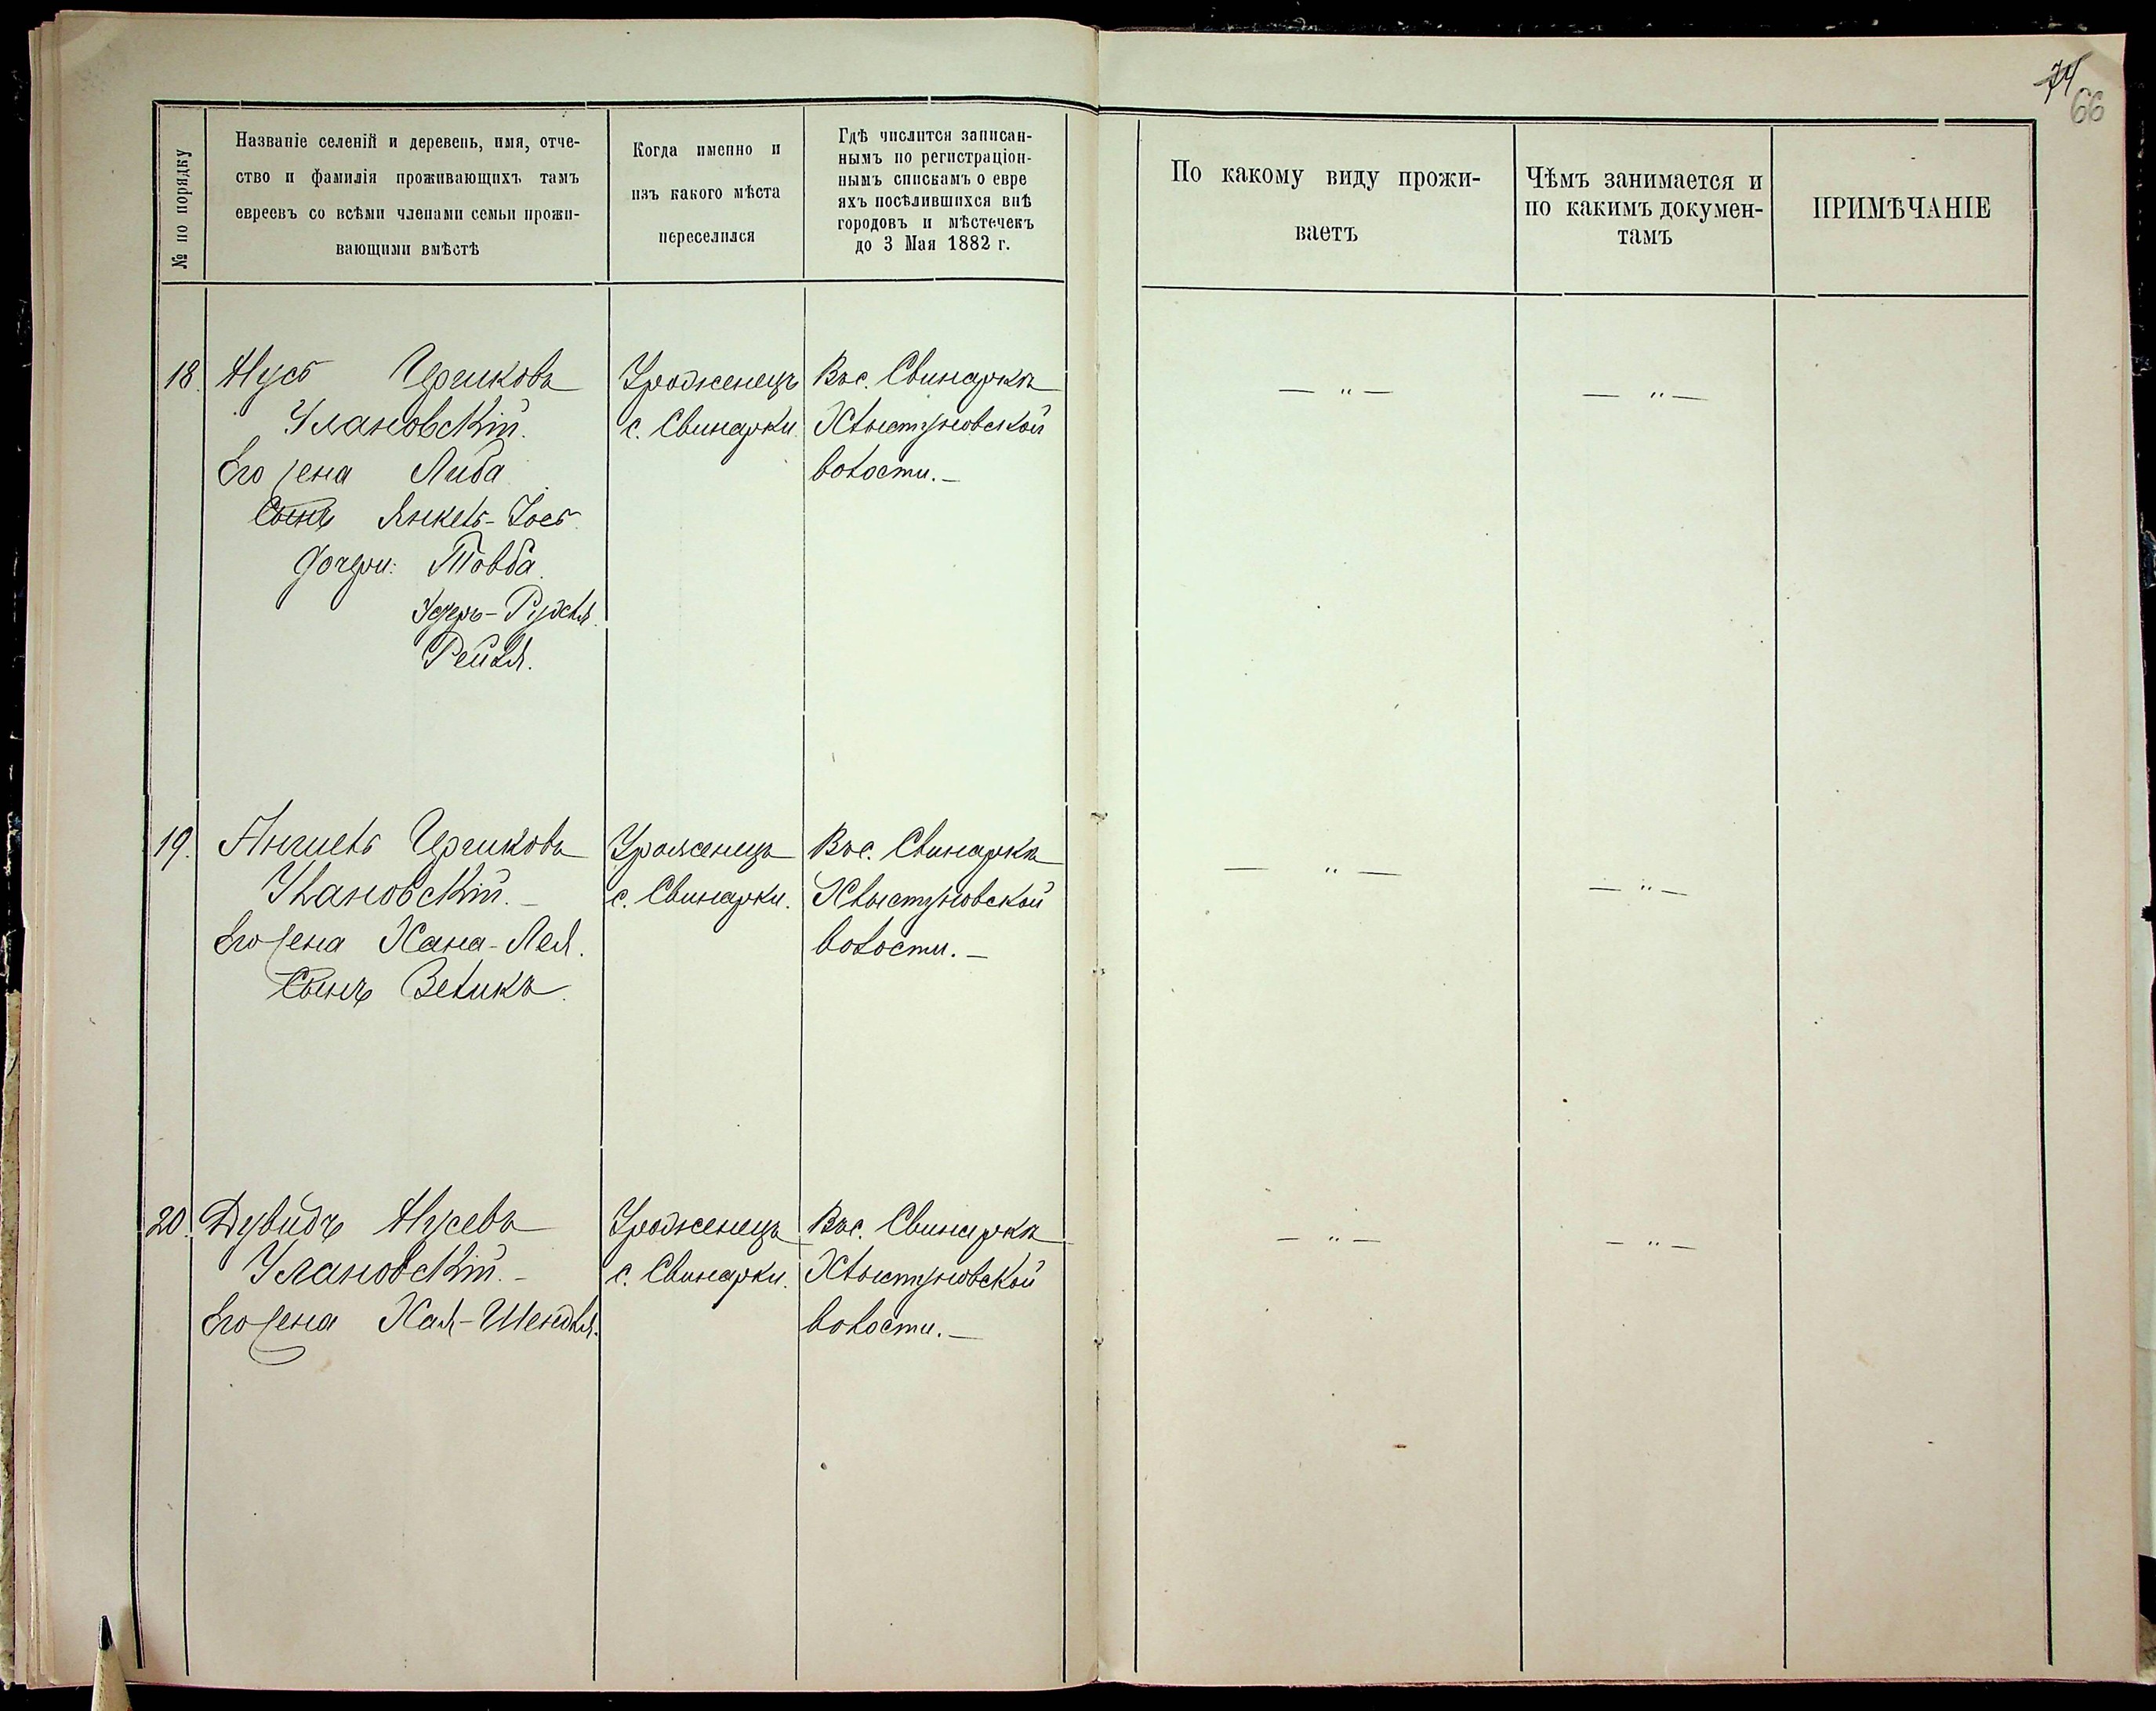 74
66
№ по порядку
Названіе селеній и деревень, имя, отче-
ство и фамилія проживающихъ тамъ
евреевъ со всѣми членами семьи прожи-
вающими вмѣстѣ
Когда именно и
изъ какого мѣста
переселился
Гдѣ числится записан-
нымъ по регистраціон-
нымъ спискамъ о евре
яхъ посѣлившихся внѣ
городовъ и мѣстечекъ
до 3 Мая 1882 г.
По какому виду прожи-
ваетъ
Чѣмъ занимается и
по какимъ докумен-
тамъ
ПРИМѢЧАНІЕ
18. Нусъ Ирликовъ
Улановскій.
Его жена Либа
Сынъ Янкель-Іосъ
Дочери: Товба.
Рейзя.
Уроженецъ
с. Свинарки
Въ с. Свинаркѣ
Хлыстуновской
волости. —
— " —
— " —
19. Ангиель Ирликовъ
Улановскій. —
Его жена Хана-Лея.
Сынъ Зеликъ.
Уроженецъ
с. Свинарки.
Въ с. Свинаркѣ
Хлыстуновской
волости. —
— " —
— " —
20. Дувидъ Нусевъ
Улановскій. —
Его жена Хая-Шендля.
Уроженецъ
с. Свинарки.
Въ с. Свинаркѣ
Хлыстуновской
волости. —
— " —
— " —